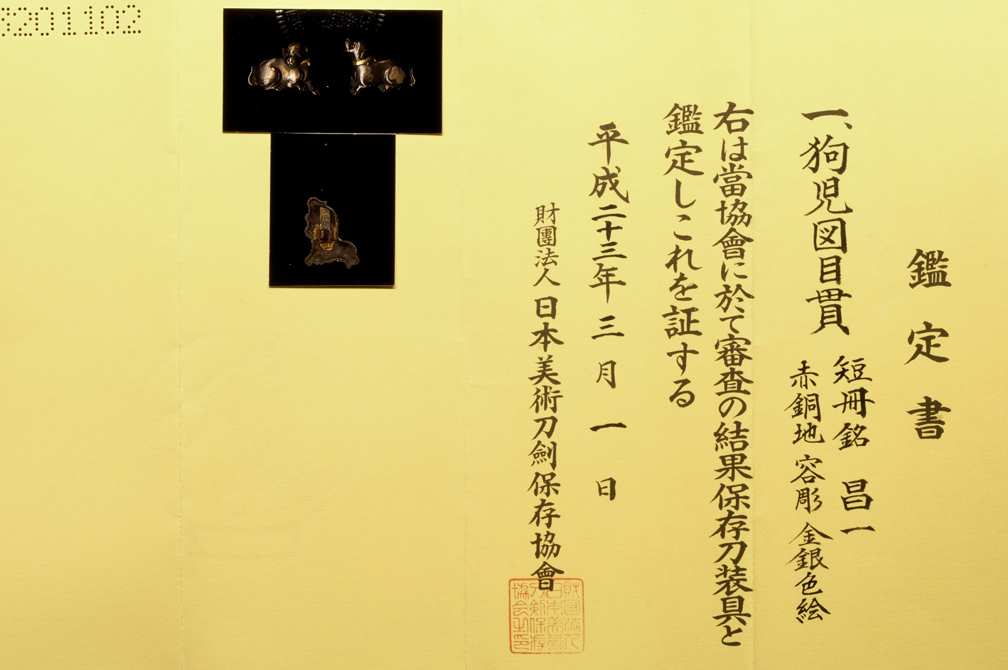 鑑定書
一、狗児図目貫
短冊銘 昌一
赤銅地 容彫 金銀色絵
右は當協會に於て審査の結果保存刀装具と
鑑定しこれを証する
平成二十三年三月一日
財團法人日本美術刀劍保存協會
3201102